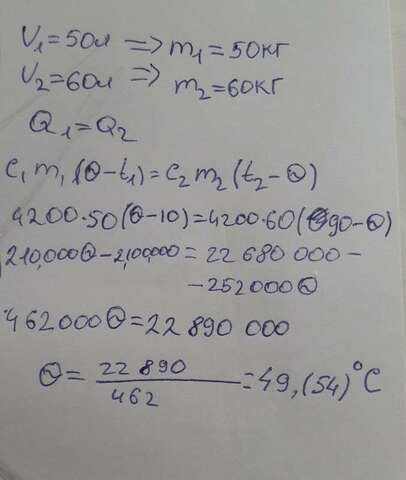 V₁=50л => m₁=50кг
V₂=60л => m₂=60кг
Q₁=Q₂
c₁m₁(Θ-t₁)=c₂m₂(t₂-Θ)
4200·50(Θ-10)=4200·60(90-Θ)
210,000Θ-2,100,000=22 680 000-
-252000Θ
462000Θ=22 890 000
Θ= 22 890 / 462 =49,(54)°C